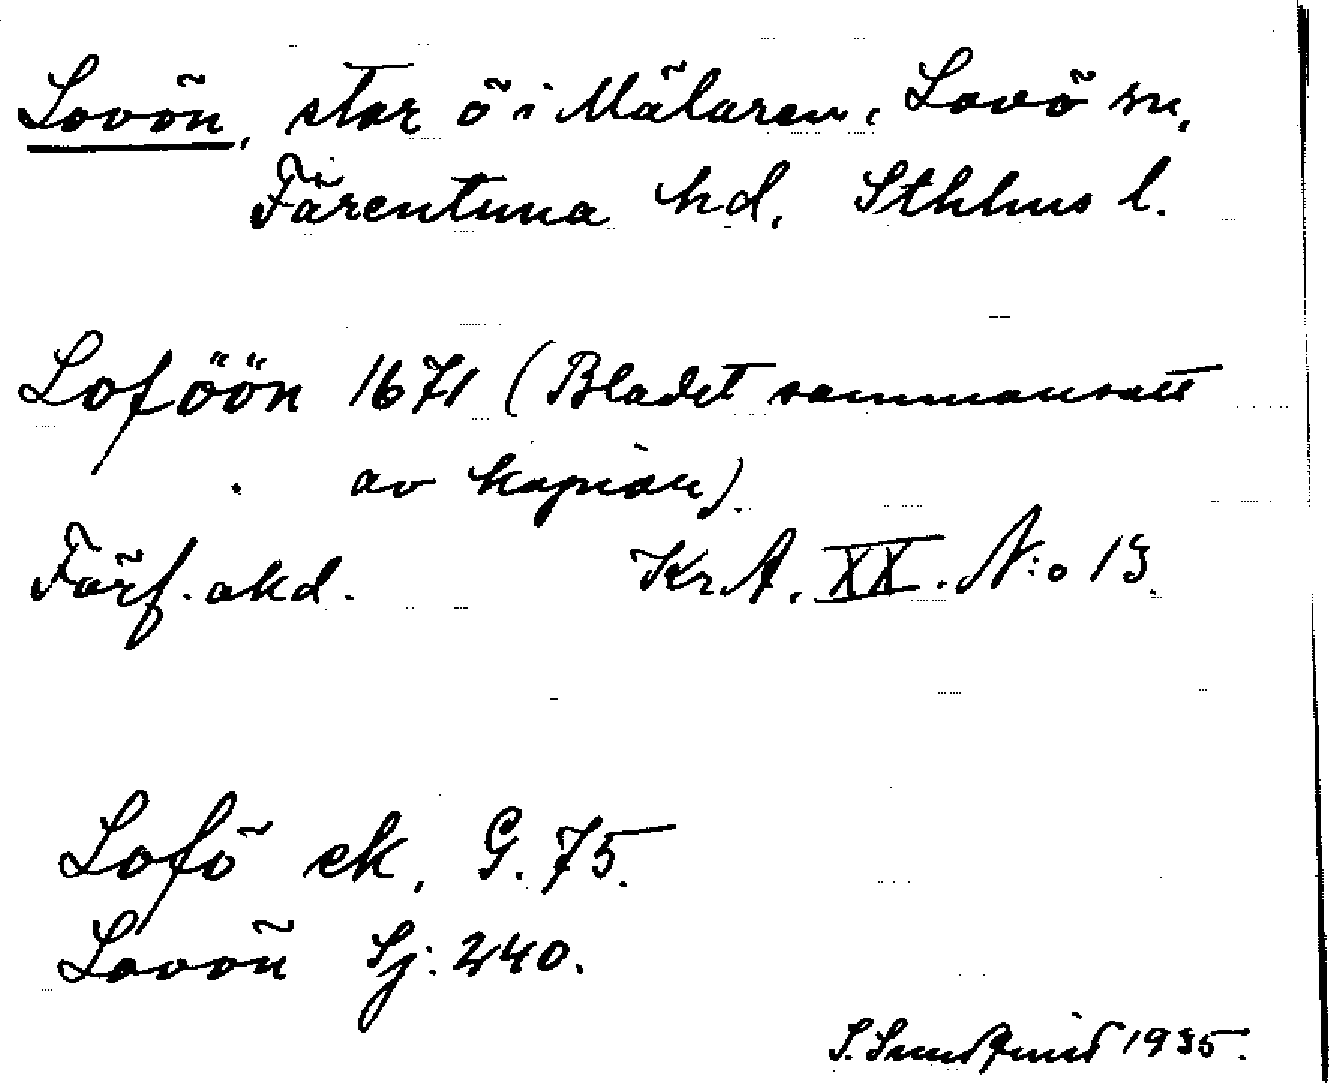 Lovön, stor ö i Mälaren, Lovö sn,
Färentuna hd, Sthlms l.
Loföön 1671 (Bladet sammansatt
av kopior).
Förf. okd. Kr. A. XX. N:o 13.
Lofö ek. G. 75.
Lovön Sj: 240.
S. Sundqvist 1935.